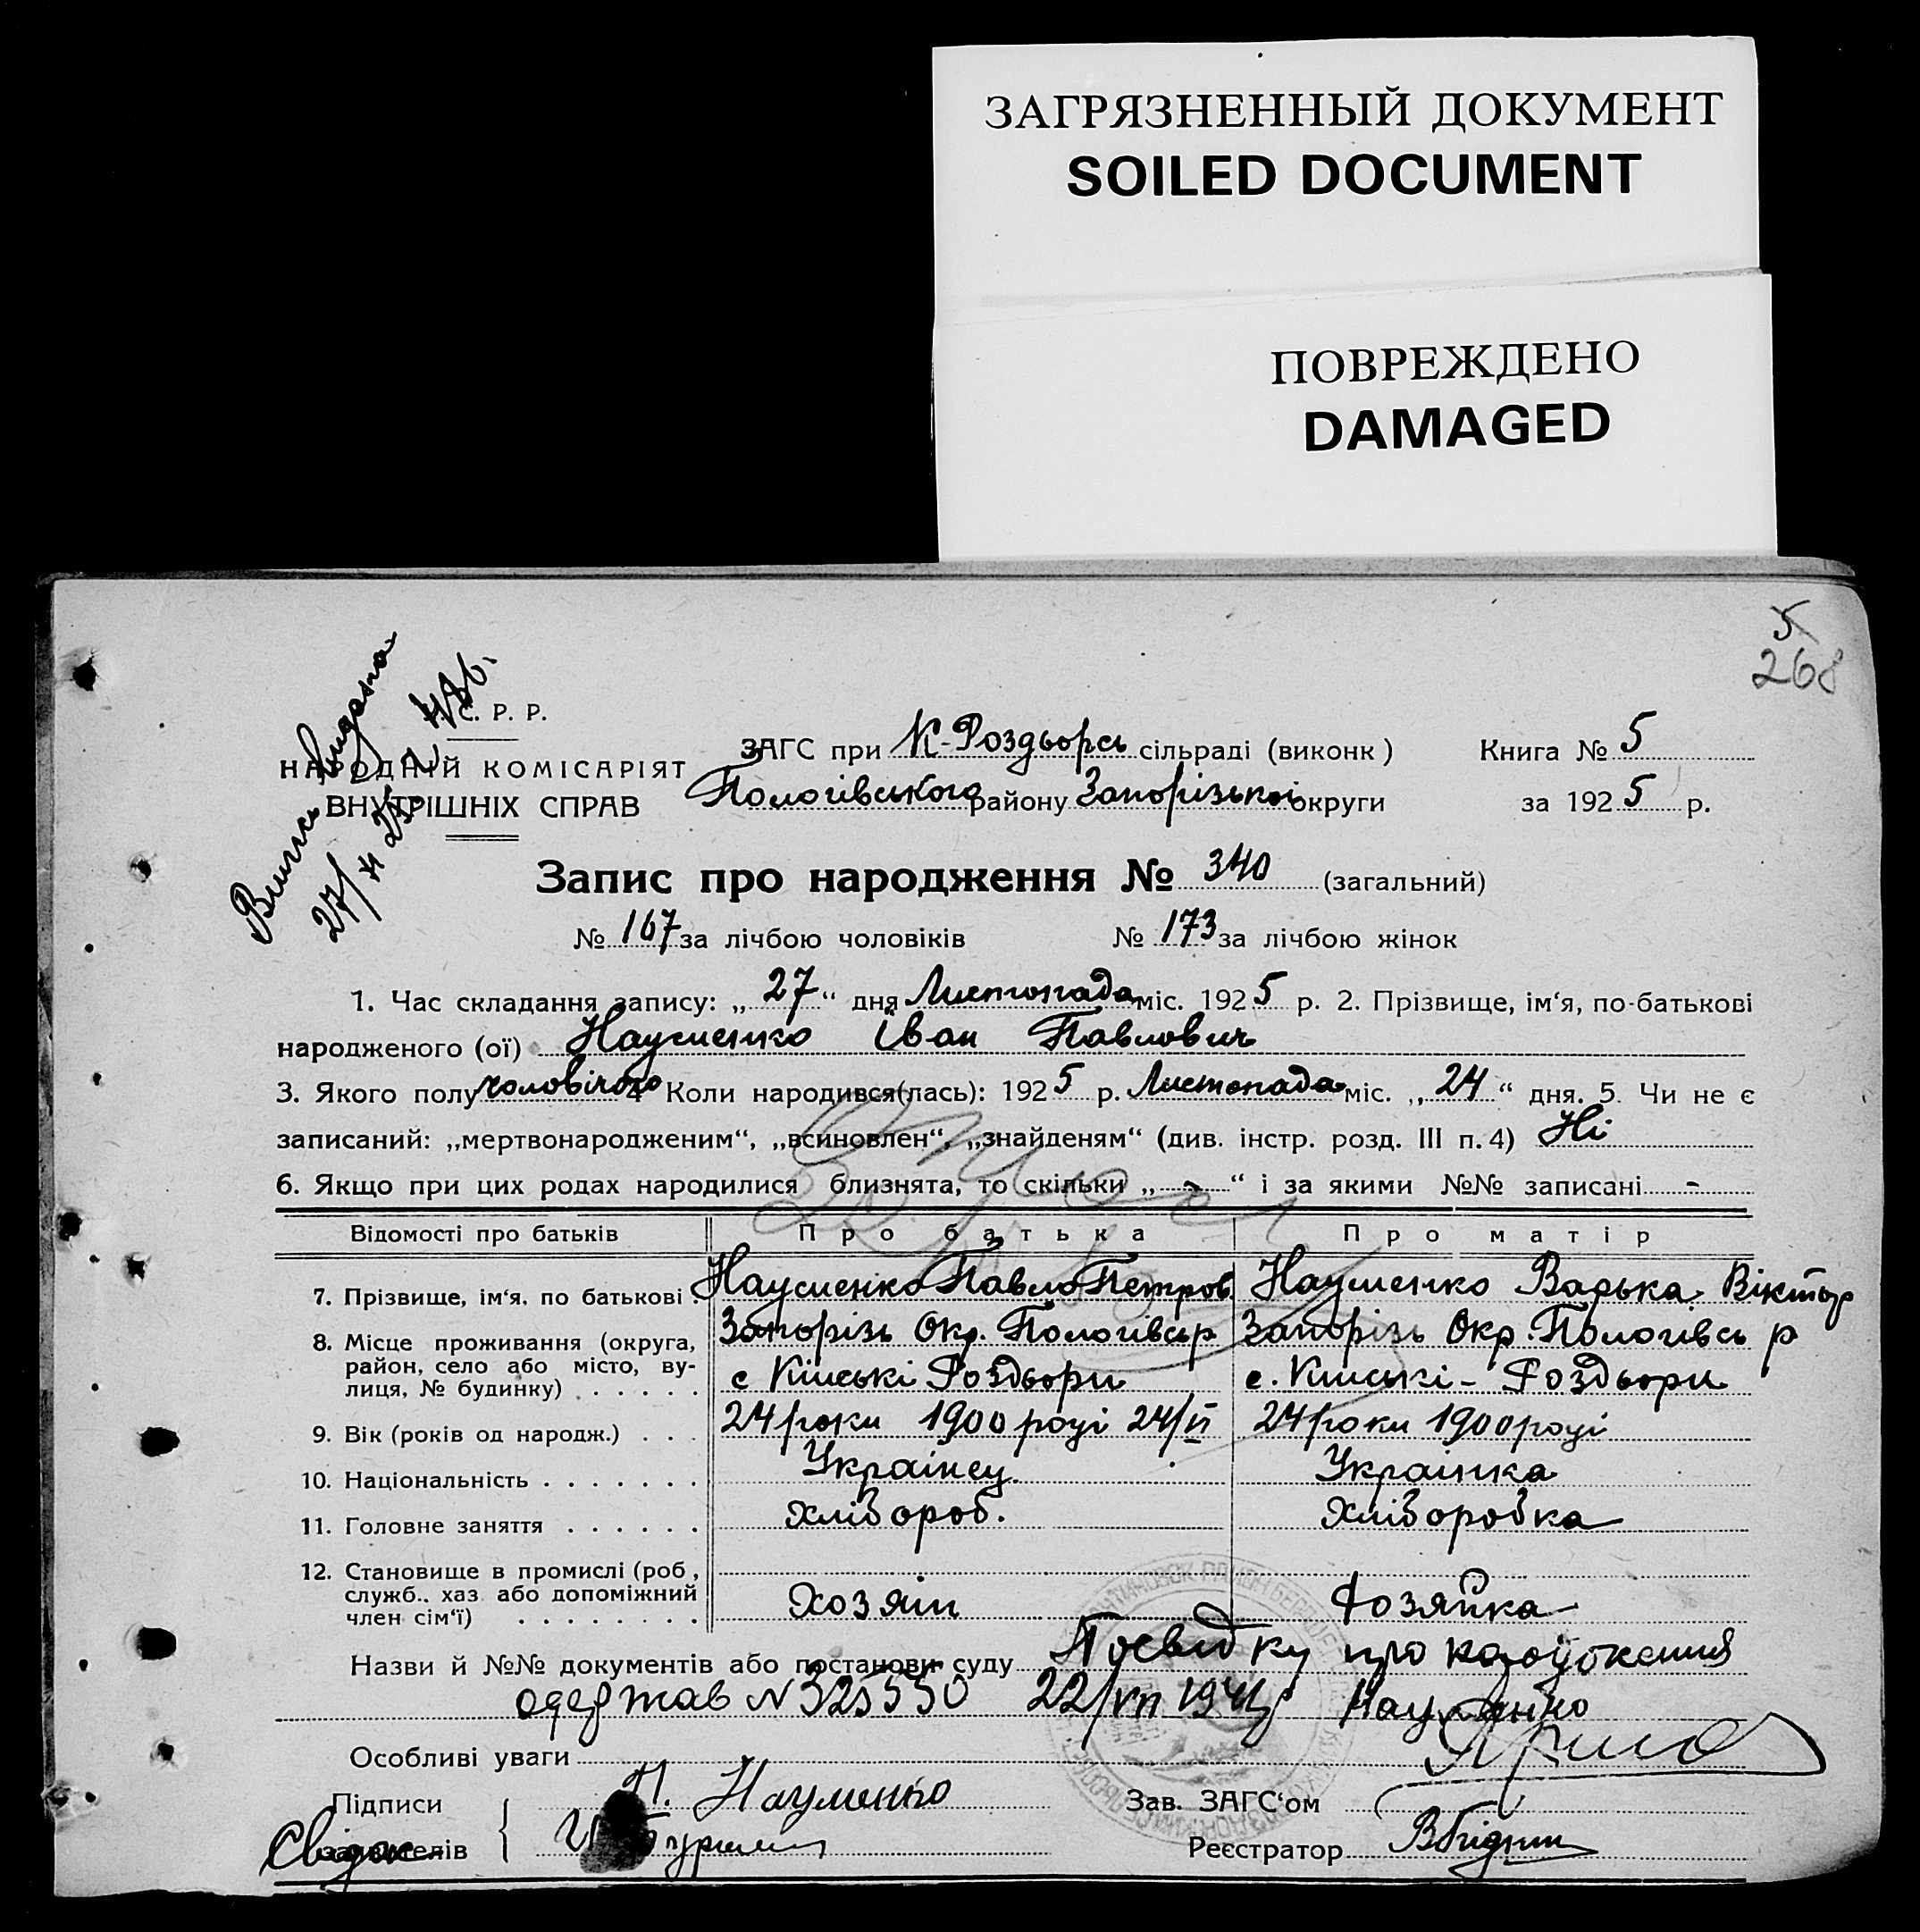 ЗАГРЯЗНЕННЫЙ ДОКУМЕНТ
SOILED DOCUMENT
ПОВРЕЖДЕНО
DAMAGED
5
268
Випись видана
27/
С. Р. Р.
НАРОДНІЙ КОМІСАРІЯТ
ВНУТРІШНІХ СПРАВ
ЗАГС при К-Роздорсь сільраді (виконк) Книга № 5
Пологівського району Запорізької округи за 1925 р.
Запис про народження № 340 (загальний)
№ 167 за лічбою чоловіків № 173 за лічбою жінок
1. Час складання запису: „27“ дня Листопада міс. 1925 р. 2. Прізвище, ім‘я, по-батькові
народженого (ої) Науменко Іван Павлович
3. Якого полу чоловічого 4 Коли народився(лась): 1925 р. Листопада міс. „24“ дня. 5. Чи не є
записаний: „мертвонародженим“, „всиновлен“, „знайденям“ (див. інстр. розд. III п. 4) Ні
6. Якщо при цих родах народилися близнята, то скільки „-“ і за якими №№ записані -
Відомості про батьків Про батька Про матір
7. Прізвище, ім‘я, по батькові . Науменко Павло Петров Науменко Варька Віктор
8. Місце проживання (округа, Запорізь Окр. Пологівськ р Запорізь Окр. Пологівсь р
район, село або місто, ву-
лиця, № будинку) . . . . . . с Кінські Роздори с. Кінські - Роздори
9. Вік (років од народж.) . . . 24 роки 1900 році 24/VI 24 роки 1900 році
10. Національність . . . . . . . Українец Українка
11. Головне заняття . . . . . . хлібороб. Хліборобка
12. Становище в промислі (роб,
служб.. хаз або допоміжний
член сім‘ї) . . . . . . . . Хозяїн Хозяйка
Назви й №№ документів або постанови суду Посвідку про народження
одержав № 325550 22/VII 194 Науменко
Особливі уваги
Підписи П. Науменко Зав. ЗАГС‘ом
Свідок заявителів Реєстратор